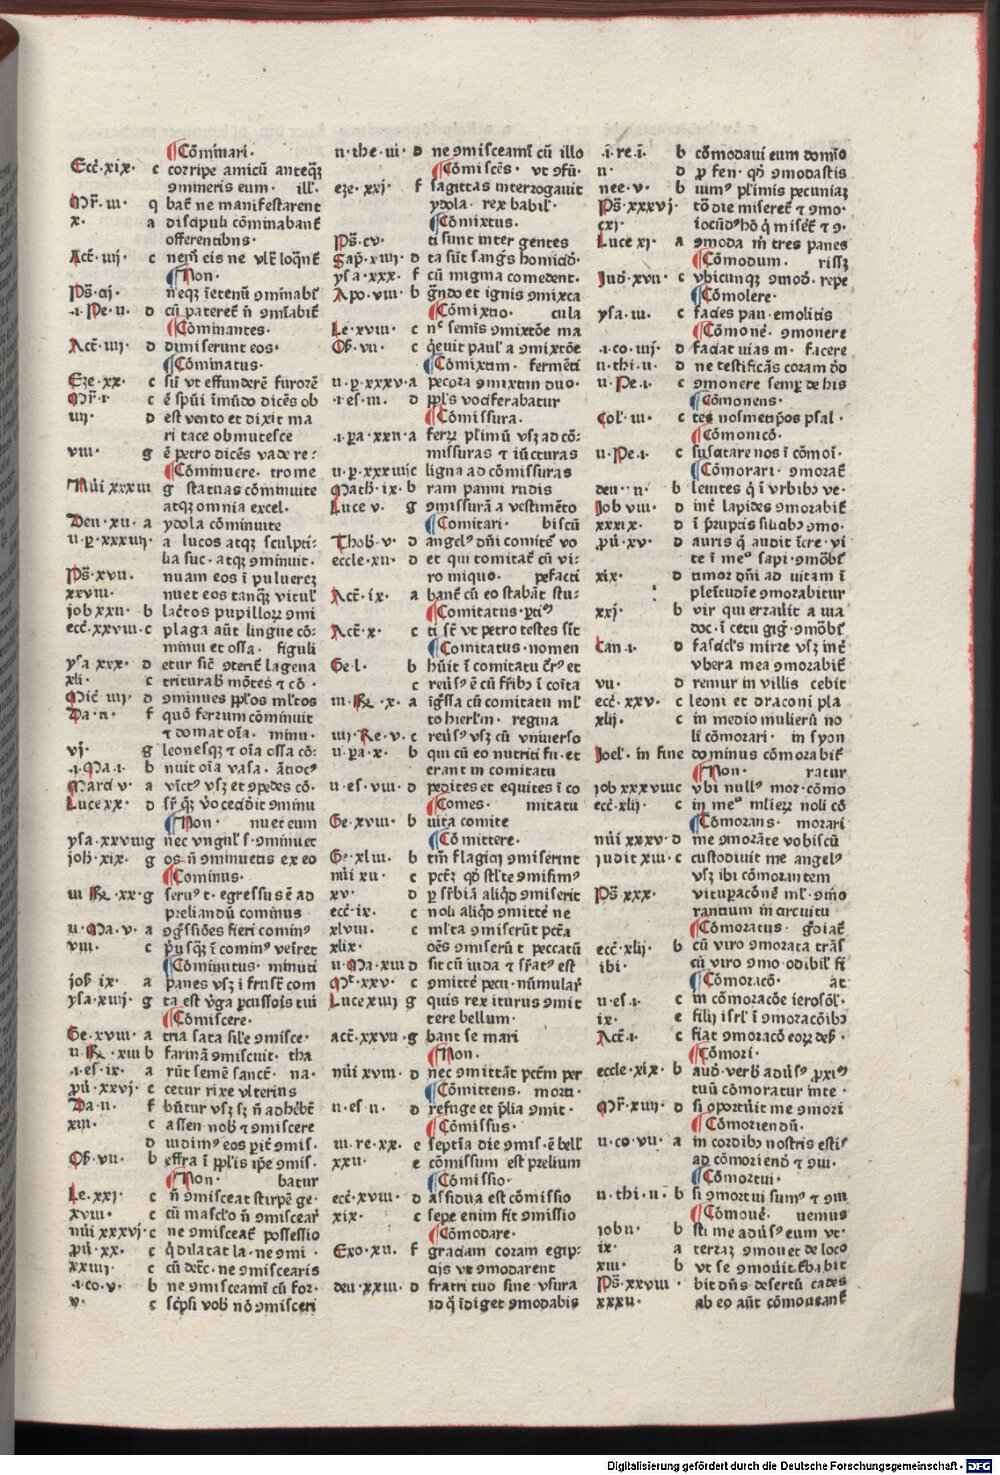 ¶Cōminari·
Ecc̄·xix· c corripe amicū anteq̄ꝫ
ꝯmineris eum· ill'·
Mr̄·iii· q bant̄ ne manifestarent
x· a discipuli cōminabant̄
offerentibus·
Act̄·iiij· c nem̄ eis ne vlt̄ loqͣnt̄
¶Non·
Ps̄·cij· neqꝫ īeternū ꝯminabit̄
·i·Pe·ii· d cū pateret̄ n̄ ꝯmīabit̄
¶Cōminantes·
Act̄·iiij d dimiserunt eos·
¶Cōminatus·
Eze·xx· c sū vt effunderē furorē
Mr̄·i· c ē spūi īmūdo dicēs ob
iiij· d est vento et dixit ma
ri tace obmutesce
viii· g ē petro dicēs vade re:
¶Cōminuere· tro me
Nūi xxxiii g statuas cōminuite
atqꝫ omnia excel·
Deu·xii· a ydola cōminuite
ii·ꝑ·xxxiiij· a lucos atqꝫ sculpti-
lia suc· atqꝫ ꝯminuit·
Ps̄·xvii· nuam eos ī pulucreꝫ
xxviii· nuet eos tanqͣꝫ vitul'
iob xxii· b lac̄tos pupilloꝝ ꝯmi
ecc̄·xxviii·c plaga aūt lingue cō-
minui et ossa· figuli
ysa xxx· d etur sic̄ ꝯterit̄ lagena
xli· c triturab̄ mōtes ⁊ cō·
Mic̄ iiij· d ꝯminues pp̄los ml̄tos
Da·ii· f quō ferrum cōminuit
⁊ domat oīa· minu·
vj· g leonesqꝫ ⁊ oīa ossa cō-
·i·Ma·i· b nuit oīa vasa· ātiocꝰ
Marci v· a vīctꝰ vsꝫ et ꝯpedes cō·
Luce xx· d sr̄ q̄ꝫ v̄o cecid̄it ꝯminu
¶Non· nuet eum
ysa·xxviiig nec vngul' s· ꝯminuet
joh̄·xix· g os n̄ ꝯminuetis ex eo
¶Cominus·
iii R̄·xx·g seruꝰ t· egressus ē ad
preliandū cominus
ii·Ma·v·a ꝯgͣssiōes fieri cominꝰ
viii· c pͥusqͣꝫ ī cominꝰ veīret
¶Cōminutus· minuti
joh̄ ix· a panes vsꝫ ī frustͣ com
ysa·xiiij· g ta est v̄ga ꝑcussoīs tui
¶Cōmiscere·
Ge·xviii· a tria sata sil'e ꝯmisce·
ii·R̄·xiii b farinā ꝯmiscuit· tha
·i·es·ix· a rūt semē sanct̄· na·
ꝓū·xxvj· c cetur rixe vlterius
Da·ii· f būtur vsꝫ sꝫ n̄ adhēbt̄
xiii· c assen nob̄ ⁊ ꝯmiscere
d uidimꝰ eos pͥit̄ ꝯmis·
Ob̄·vii· b effra ī pp̄lis ip̄e ꝯmis·
¶Non· batur
Le·xxi· c n̄ ꝯmisceat stirpē ge·
xviii· c cū mascl̄o n̄ ꝯmiscear̄
nūi xxxvj·c ne ꝯmisceat̄ possessio
ꝓū·xx· c q̄ dilatat la·ne ꝯmi·
xxiiij· c cū det̄c·ne ꝯmiscearis
·i·co·v· b ne ꝯmisceamī cū for·
v· c sc̄psi vob̄ nō ꝯmisceri
ii·the·iii·d ne ꝯmisceamī cū illo
¶Cōmiscēs· vt ꝯfū·
eze·xxj· f sagittas interrogauit
ydola· rex babil'·
¶Cōmixtus·
Ps̄·cv· ti sunt inter gentes
Sap̄·xiiij d ta sūt sang̓s homicid̓·
ysa·xxx· f cū migma comedent·
Apo·viii· b gͣndo et ignis ꝯmixca
¶Cōmixtio· cula
Le·xviii· c nͨ semīs ꝯmixtōe ma
Ob̄·vii· c q̄euit paul' a ꝯmixtōe
¶Cōmixtum· fermēti
ii·ꝑ·xxxv·a pecora ꝯmixtim duo·
·i·es·iii· d pp̄ls vociferabatur
¶Cōmissura·
·i·ꝑa·xxii·a ferꝝ pl̓imū vsꝫ ad cō-
missuras ⁊ iūcturas
ii·ꝑ·xxxiiic ligna ad cōmissuras
Math̄·ix·b ram panni rudis
Luce v· g ꝯmissurā a vestimēto
¶Comitari· biscū
Thob̄·v· d angelꝰ dn̄i comitet̄ vo
eccle·xii· d et qui comitat̄ cū vi-
ro iniquo· pefacti
Act̄·ix· a bant̄ cū eo stabāt stu-
¶Comitatus·ꝑtiͣꝰ
Act̄·x· c ti st̄ vt petro testes sīt
¶Comitatus·nomen
Ge·l· b hūit ī comitatu c̄rꝰ et
c reūsꝰ ē cū fr̄ibꝰ ī coīta
iii·R̄·x·a igͣssa cū comitatu ml̄
to hierl̄m· regina
iiij·Re·v·c reūsꝰ vsꝫ cū vniuerso
ii·ꝑa·x· b qui cū eo nutriti fu· et
erant in comitatu
ii·es·viii·d pedites et equites ī co
¶Comes· mitatu
Ge·xviii· b uita comite
¶Cōmittere·
Ge·xliii· b tm̄ flagicij ꝯmiserint
nūi xii· c pct̄ꝫ qd̓ stl̓te ꝯmisimꝰ
xv· d ꝑ sr̄biā aliqd̓ ꝯmiserit
ecc̄·ix· c noli aliqd̓ ꝯmitte̓ ne
xlviii· c ml̄ta ꝯmiserūt pct̄a
xlix· oēs ꝯmiserūt peccatū
ii·Ma·xiiid sit cū iuda ⁊ sr̄atꝰ est
Mt̄·xxv· c ꝯmitte̓ pecu·nūmular̄
Luce xiiij g quis rex iturus ꝯmit
tere bellum·
act̄·xxvii·g bant se mari
¶Non·
nūi xviii· d nec ꝯmittāt pct̄m per
¶Cōmittens· morti·
ii·es ii· d refuge et p̄lia ꝯmit·
¶Cōmissus·
iii·re·xx· e septīa die ꝯmis·ē bell'
xxii· e cōmissum est prelium
¶Cōmissio·
ecc̄·xviii· d assidua est cōmissio
xix· c sepe enim fit ꝯmissio
¶Cōmodare·
Exo·xii· f graciam coram egip-
cijs vt ꝯmodarent
deu·xxiii·d fratri tuo sine vsura
id q̄ īdiget ꝯmodabis
·i·re·i· b cōmodaui eum domīo
ii· d ꝓ fen· qd̓ ꝯmodastis
nee·v· b uimꝰ pl̓imis pecuniaꝫ
Ps̄·xxxvj· tō die miseret̄ ⁊ ꝯmo·
cxj· iocūdꝰ hō q̄ misēt̄ ⁊ ꝯ·
Luce xj· a ꝯmoda m̄ tres panes
¶Cōmodum· rissꝫ
Iud̓·xvii·c vbicunqꝫ ꝯmod̓·repe
¶Cōmolere·
ysa·iii· c facies pau·emolitis
¶Cōmone̓· ꝯmonere
·i·co·iiij· d faciat uias m·facere
ii·thi·ii· d ne testificās coram dō
ii·Pe·i· c ꝯmonere semꝑ de his
¶Cōmonens·
Col'·iii· c tes nosmetip̄os psal·
¶Cōmonicō·
ii·Pe·i· c suscitare nos ī cōmoī·
¶Cōmorari· ꝯmorat̄
deu·ii· b leuites q̄ ī vrbibꝰ ve·
Job viii· d int̄ lapides ꝯmorabit̄
xxxix· d ī p̄ruptis silicibꝰ ꝯmo·
ꝓū·xv· d auris q̄ audit īcre·vi
te ī meͦ sapi·ꝯmōbt̄
xix· d timor dn̄i ad uitam ī
plenitudīe ꝯmorabitur
xxj· b vir qui errauīt a uia
doc·ī cetu gig̓·ꝯmōbt̄
Can·i· d fascicl̓s mirre vsꝫ int̄
vbera mea ꝯmorabit̄
vii· d remur in villis cebit
ecc̄·xxv· c leoni et draconi pla
xlij· c in medio mulierū no
li cōmorari· in syon
Joel'·in fine dominus cōmorabit̄
¶Non· ratur
iob xxxviiic vbi nullꝰ mor·cōmo
ecc̄·xlij· c in meͦ ml̓ieꝝ noli cō
¶Cōmorans· morari
nūi xxxv·d me ꝯmorāte vobiscū
judit xiii·c custodiuit me angelꝰ
vsꝫ ibi cōmorantem
Ps̄·xxx· vitupacōne̓ ml̄·ꝯmo
rantium in circuitu
¶Cōmoratus· gͣdiat̄
ecc̄·xlij· b cū viro ꝯmorata trās
ibi· cū viro ꝯmo·odibil' fi
¶Cōmoracō· āt
ii·es·i· c in cōmoracōe ierosōl'·
ix· e filij isrl̄ ī ꝯmoracōibꝰ
Act̄·i· c fiat ꝯmoracō eoꝝ des̄·
¶Cōmori·
eccle·xix· b aud̓·verb̄ aduſꝰ ꝓxiͣꝰ
tuū cōmoratur inte·
Mr̄·xiiij· d si oportuīt me ꝯmori
¶Cōmoriendū·
ii·co·vii· a in cordibꝰ nostris estiꝰ
ad cōmoriend̓ ⁊ ꝯui·
¶Cōmortui·
ii·thi·ii· b si ꝯmortui sumꝰ ⁊ ꝯui
¶Cōmoue̓· uemus
ioh ii· b sti me aduſꝰ eum vt·
ix· a terraꝫ ꝯmouet de loco
xiii· b vt se ꝯmouīt t̄babit
Ps̄·xxviii· bit dn̄s desertū cades
xxxii· ab eo aūt cōmoueant̄
Digitalisierung gefördert durch die Deutsche Forschungsgemeinschaft · DFG